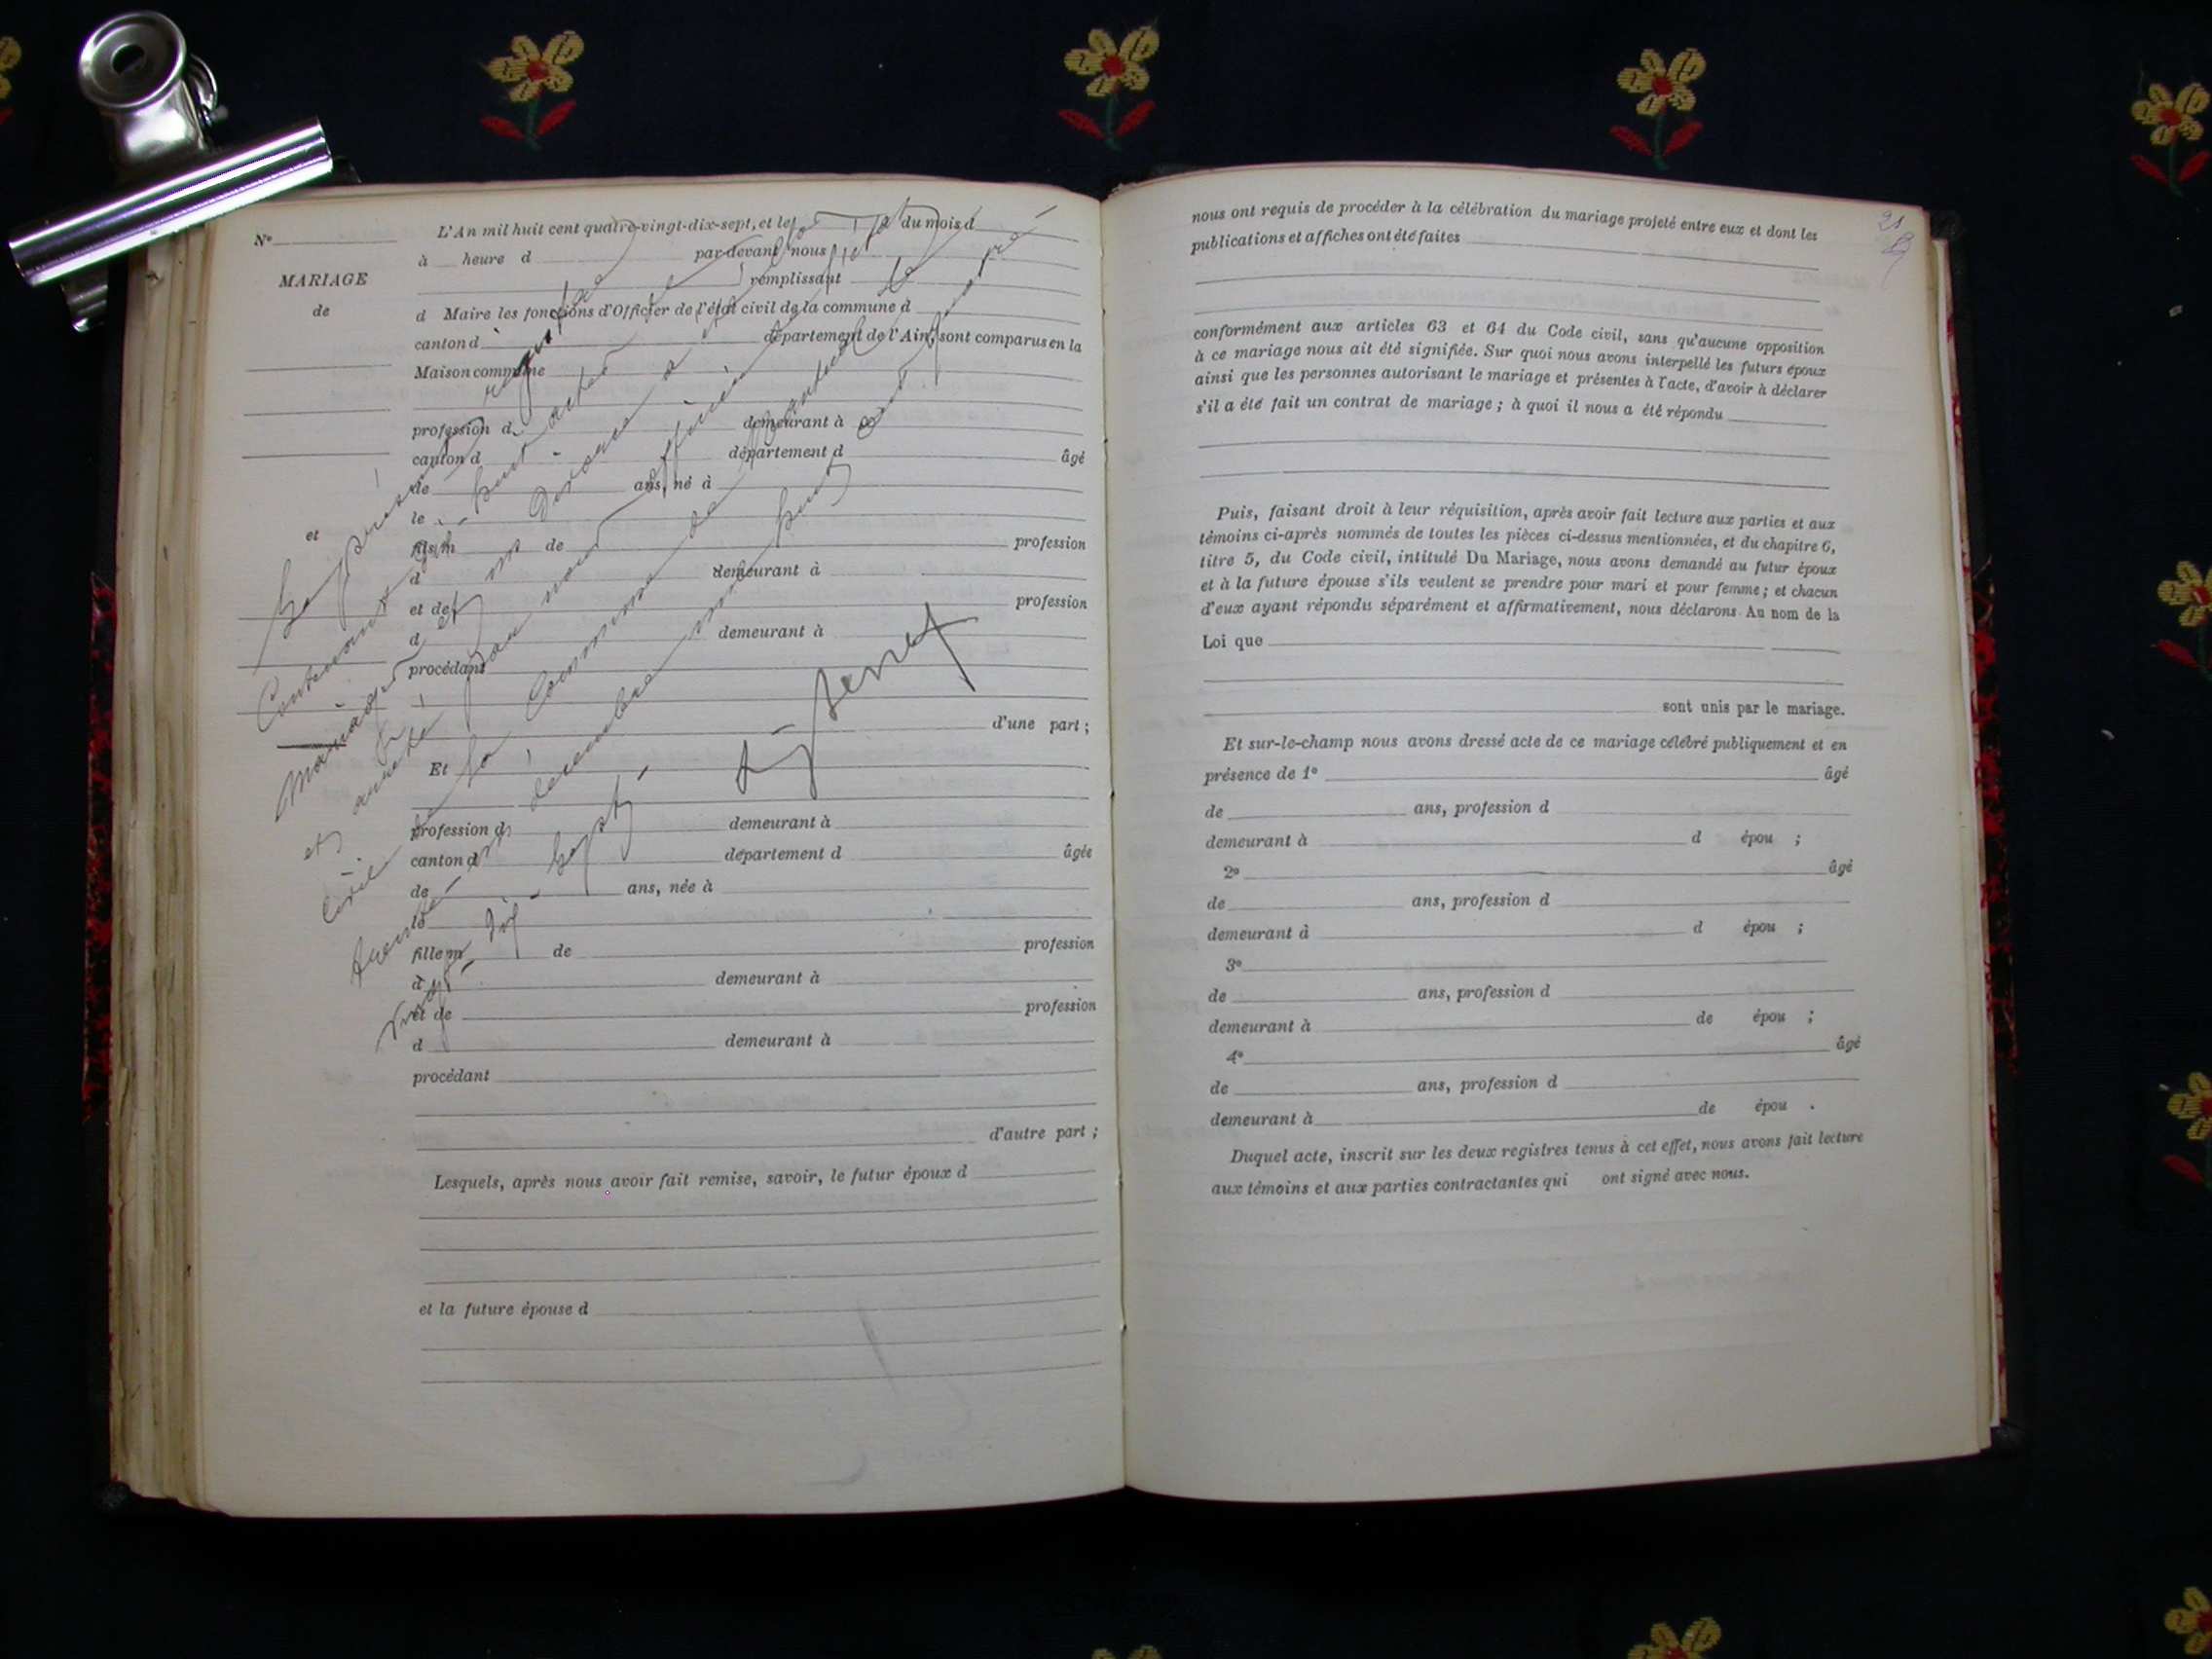 N°
L'An mil huit cent quatre-vingt-dix-sept, et le du mois d
à heure d par-devant nous
remplissant
MARIAGE
de
d Maire les fonctions d'Officier de l'état civil de la commune d
canton d département de l'Ain, sont comparus en la
Maison commune
profession d demeurant à
canton d département d âgé
de ans, né à
le
et
fils m de profession
d demeurant à
et de profession
d demeurant à
procédant
d'une part ;
Et
profession d demeurant à
canton d département d âgée
de ans, née à
le
fille m de profession
d demeurant à
et de profession
d demeurant à
procédant
d'autre part ;
Lesquels, après nous avoir fait remise, savoir, le futur époux d
et la future épouse d
Le présent registre
Contenant huit actes de
Mariages et
et arrêté par nous officier de l'état
Civil de la Commune de
trente un décembre mil huit cent
quatre
vingt dix sept
21
nous ont requis de procéder à la célébration du mariage projeté entre eux et dont les
publications et affiches ont été faites
conformément aux articles 63 et 64 du Code civil, sans qu'aucune opposition
à ce mariage nous ait été signifiée. Sur quoi nous avons interpellé les futurs époux
ainsi que les personnes autorisant le mariage et présentes à l'acte, d'avoir à déclarer
s'il a été fait un contrat de mariage ; à quoi il nous a été répondu
Puis, faisant droit à leur réquisition, après avoir fait lecture aux parties et aux
témoins ci-après nommés de toutes les pièces ci-dessus mentionnées, et du chapitre 6,
titre 5, du Code civil, intitulé Du Mariage, nous avons demandé au futur époux
et à la future épouse s'ils veulent se prendre pour mari et pour femme ; et chacun
d'eux ayant répondu séparément et affirmativement, nous déclarons Au nom de la
Loi que
sont unis par le mariage.
Et sur-le-champ nous avons dressé acte de ce mariage célébré publiquement et en
présence de 1° âgé
de ans, profession d
demeurant à d épou ;
2° âgé
de ans, profession d
demeurant à d épou ;
3°
de ans, profession d
demeurant à de épou ;
4° âgé
de ans, profession d
demeurant à de épou .
Duquel acte, inscrit sur les deux registres tenus à cet effet, nous avons fait lecture
aux témoins et aux parties contractantes qui ont signé avec nous.